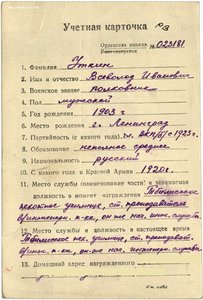 Учетная карточка
Орденская книжка № 023181
1. Фамилия Уткин
2. Имя и отчество Всеволод Иванович
3. Воинское звание полковник
4. Пол мужской
5. Год рождения 1903 г
6. Место рождения г. Ленинград
7. Партийность (с какого года) чл. ВКП(б) с 1925 г.
8. Образование неполное среднее
9. Национальность русский
10. С какого года в Красной Армии 1920 г.
11. Место службы (наименование части) и занимаемая
должность в момент награждения Тбилисское
пехотное училище, ст. преподаватель
12. Место службы и должность в настоящее время
Тбилисское пех. училище, ст. преподават.
13. Домашний адрес награжденного